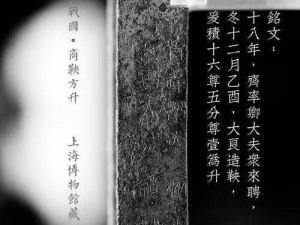 銘文：
十八年，齊率卿大夫衆來聘，
冬十二月乙酉，大良造鞅，
爰積十六尊五分尊壹爲升
戰國·商鞅方升
上海博物館藏